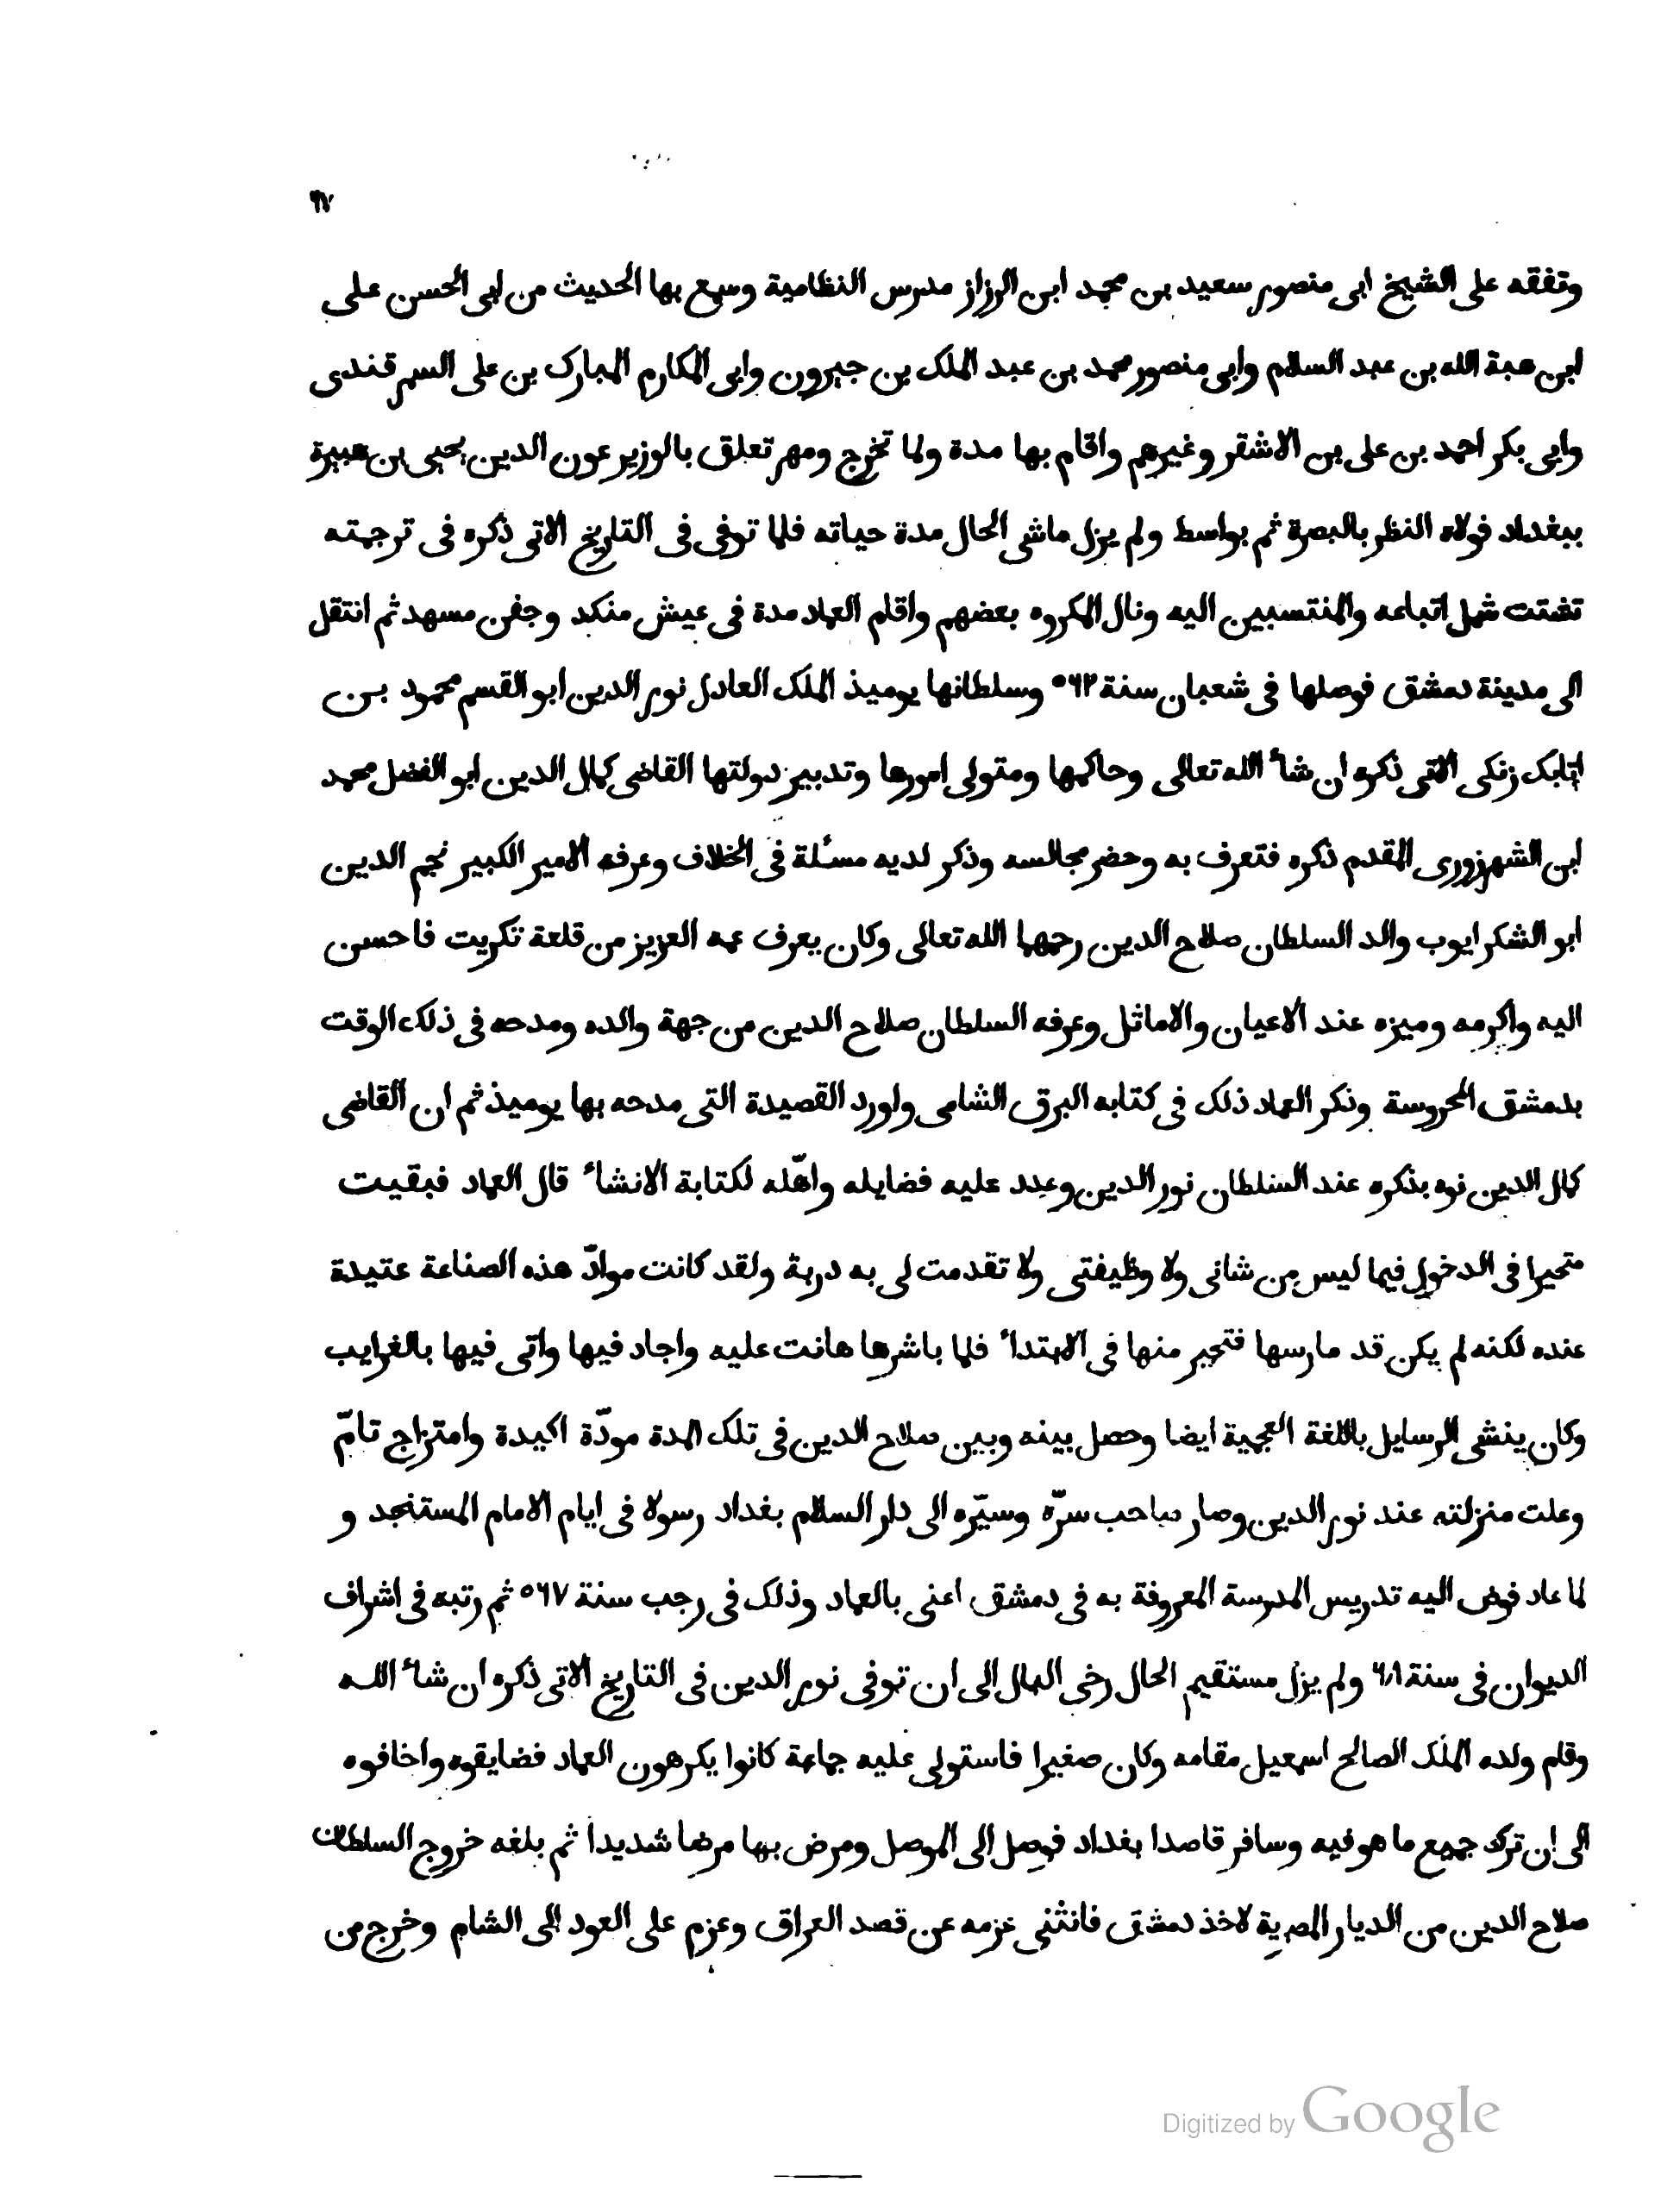 ٩٧
وتفقه على الشيخ ابى منصور سعيد بن محمد ابن الرزاز مدرس النظامية وسمع بها الحديث من ابى الحسن على
ابن هبة الله بن عبد السلام وابى منصور محمد بن عبد الملك بن جيرون وابى المكارم المبارك بن على السمرقندى
وابى بكر احمد بن على بن الاشقر وغيرهم واقام بها مدة ولما تخرج ومهر تعلق بالوزير عون الدين يحيى بن هبيرة
ببغداد فولاه النظر بالبصرة ثم بواسط ولم يزل ماشى الحال مدة حياته فلما توفى فى التاريخ الاتى ذكره فى ترجمته
تشتت شمل اتباعه والمنتسبين اليه ونال المكروه بعضهم واقام العماد مدة فى عيش منكد وجفن مسهد ثم انتقل
الى مدينة دمشق فوصلها فى شعبان سنة ٥٦٢ وسلطانها يوميذ الملك العادل نور الدين ابو القسم محمود بن
اتابك زنكى الاتى ذكره ان شاء الله تعالى وحاكمها ومتولى امورها وتدبير دولتها القاضى كمال الدين ابو الفضل محمد
ابن الشهرزورى المقدم ذكره فتعرف به وحضر مجالسه وذكر لديه مسئلة فى الخلاف وعرفه الامير الكبير نجم الدين
ابو الشكر ايوب والد السلطان صلاح الدين رحمهما الله تعالى وكان يعرف عمه العزيز من قلعة تكريت فاحسن
اليه واكرمه وميزه عند الاعيان والاماثل وعرفه السلطان صلاح الدين من جهة والده ومدحه فى ذلك الوقت
بدمشق المحروسة وذكر العماد ذلك فى كتابه البرق الشامى واورد القصيدة التى مدحه بها يوميذ ثم ان القاضى
كمال الدين نوه بذكره عند السلطان نور الدين وعدد عليه فضايله واهّله لكتابة الانشاء قال العماد فبقيت
متحيرا فى الدخول فيما ليس من شانى ولا وظيفتى ولا تقدمت لى به دربة ولقد كانت موادّ هذه الصناعة عتيدة
عنده لكنه لم يكن قد مارسها فتحير منها فى الابتداء فلما باشرها هانت عليه واجاد فيها واتى فيها بالغرايب
وكان ينشى الرسايل باللغة العجمية ايضا وحصل بينه وبين صلاح الدين فى تلك المدة مودّة اكيدة وامتزاج تامّ
وعلت منزلته عند نور الدين وصار صاحب سرّه وسيّره الى دار السلام بغداد رسولا فى ايام الامام المستنجد و
لما عاد فوض اليه تدريس المدرسة المعروفة به فى دمشق اعنى بالعماد وذلك فى رجب سنة ٥٦٧ ثم رتبه فى اشراف
الديوان فى سنة ٦٨ ولم يزل مستقيم الحال رخى البال الى ان توفى نور الدين فى التاريخ الاتى ذكره ان شاء الله
وقام ولده الملك الصالح اسمعيل مقامه وكان صغيرا فاستولى عليه جماعة كانوا يكرهون العماد فضايقوه واخافوه
الى ان ترك جميع ما هو فيه وسافر قاصدا بغداد فوصل الى الموصل ومرض بها مرضا شديدا ثم بلغه خروج السلطان
صلاح الدين من الديار المصرية لاخذ دمشق فانثنى عزمه عن قصد العراق وعزم على العود الى الشام وخرج من
Digitized by Google